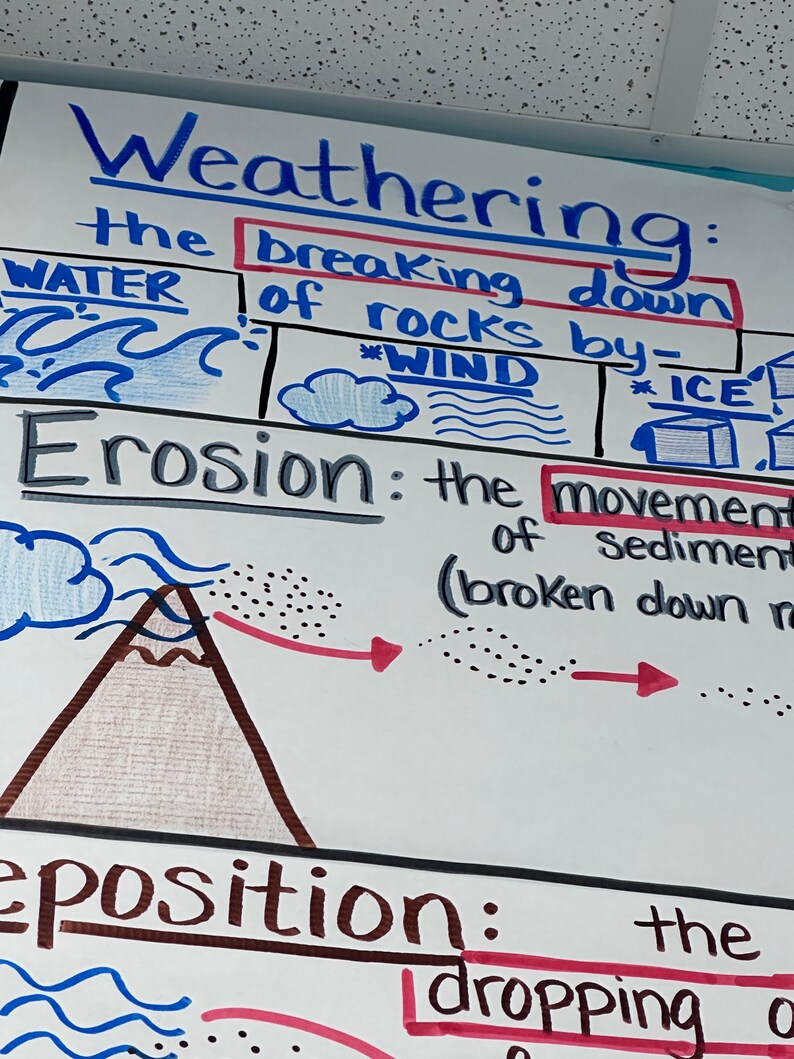 Weathering:
the breaking down
of rocks by-
WATER
*WIND
*ICE
Erosion: the movement
of sediment
(broken down
eposition: the
dropping